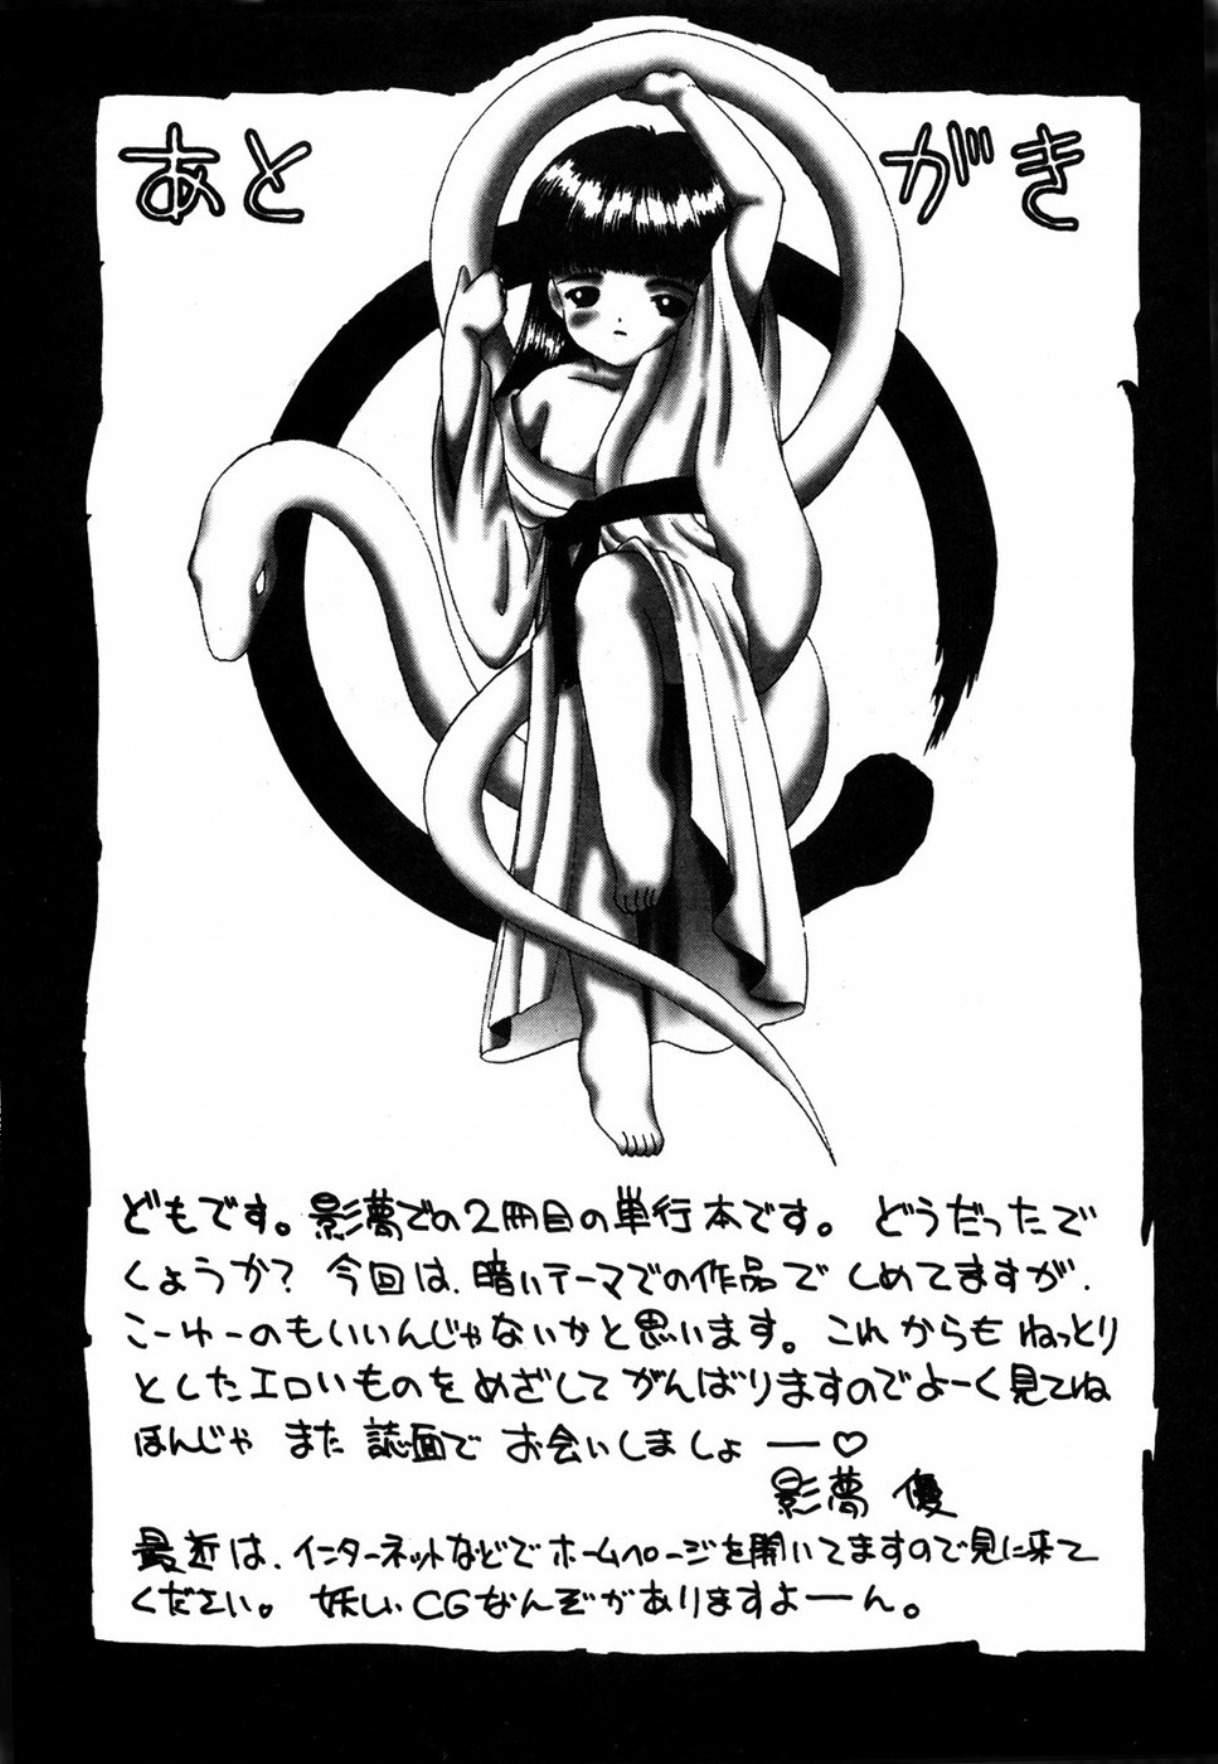 あとがき
どもです。影夢での2冊目の単行本です。 どうだったで
くょうか? 今回は、暗いテーマでの作品で しめてますが、
こーゆーのもいいんじゃないかと思います。これからも ねっとり
としたエロいものを めざして がんばりますのでよーく見てね
ほんじゃ また 誌面で お会いしましょ ー♡
影夢 優
最近は、インターネットなどでホームページを開いてますので見に来て
ください。 妖しい CGなんぞがありますよーん。